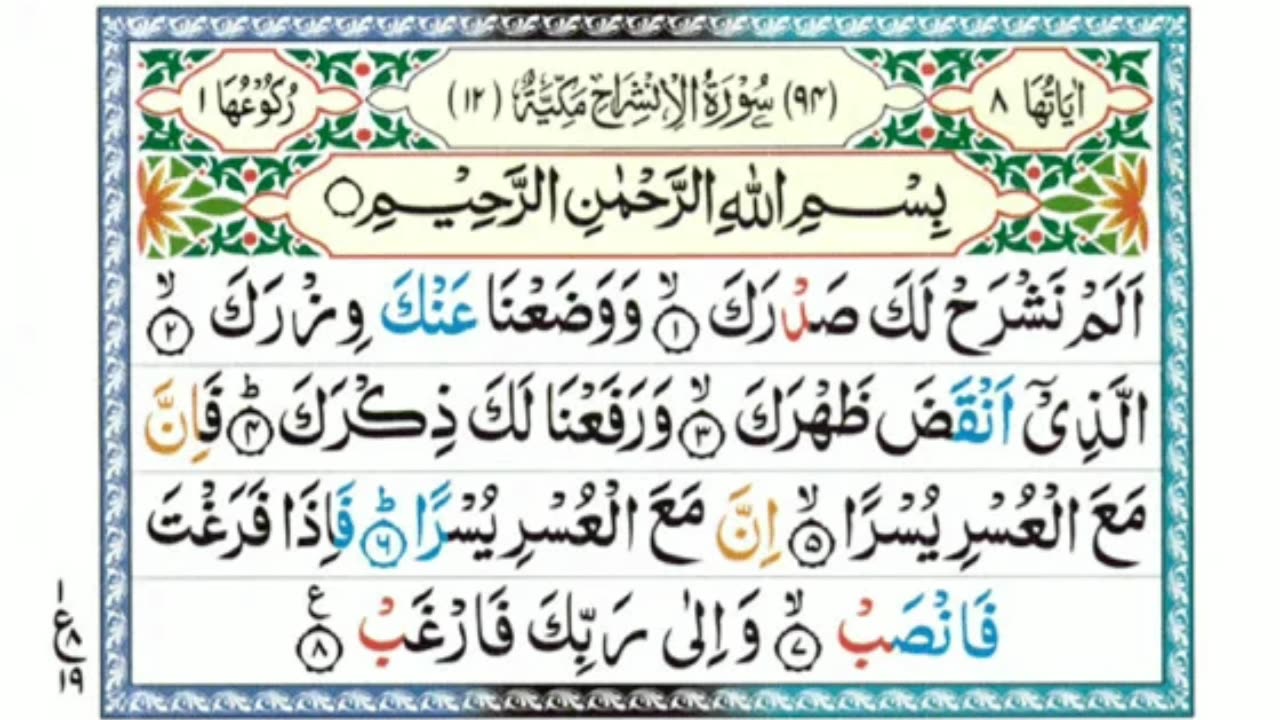 اٰيَاتُهَا ٨ (٩٤) سُوْرَةُ الْاِنْشِرَاحِ مَكِّيَّةٌ (١٢) رُكُوْعُهَا ١
بِسْمِ اللّٰهِ الرَّحْمٰنِ الرَّحِيْمِ ○
اَلَمْ نَشْرَحْ لَكَ صَدْرَكَ ۙ﴿١﴾ وَوَضَعْنَا عَنْكَ وِزْرَكَ ۙ﴿٢﴾
الَّذِيْٓ اَنْقَضَ ظَهْرَكَ ۙ﴿٣﴾ وَرَفَعْنَا لَكَ ذِكْرَكَ ؕ﴿٤﴾ فَاِنَّ
مَعَ الْعُسْرِ يُسْرًا ۙ﴿٥﴾ اِنَّ مَعَ الْعُسْرِ يُسْرًا ؕ﴿٦﴾ فَاِذَا فَرَغْتَ
فَانْصَبْ ۙ﴿٧﴾ وَاِلٰى رَبِّكَ فَارْغَبْ ﴿٨﴾ ع
١
ع ٨
١٩